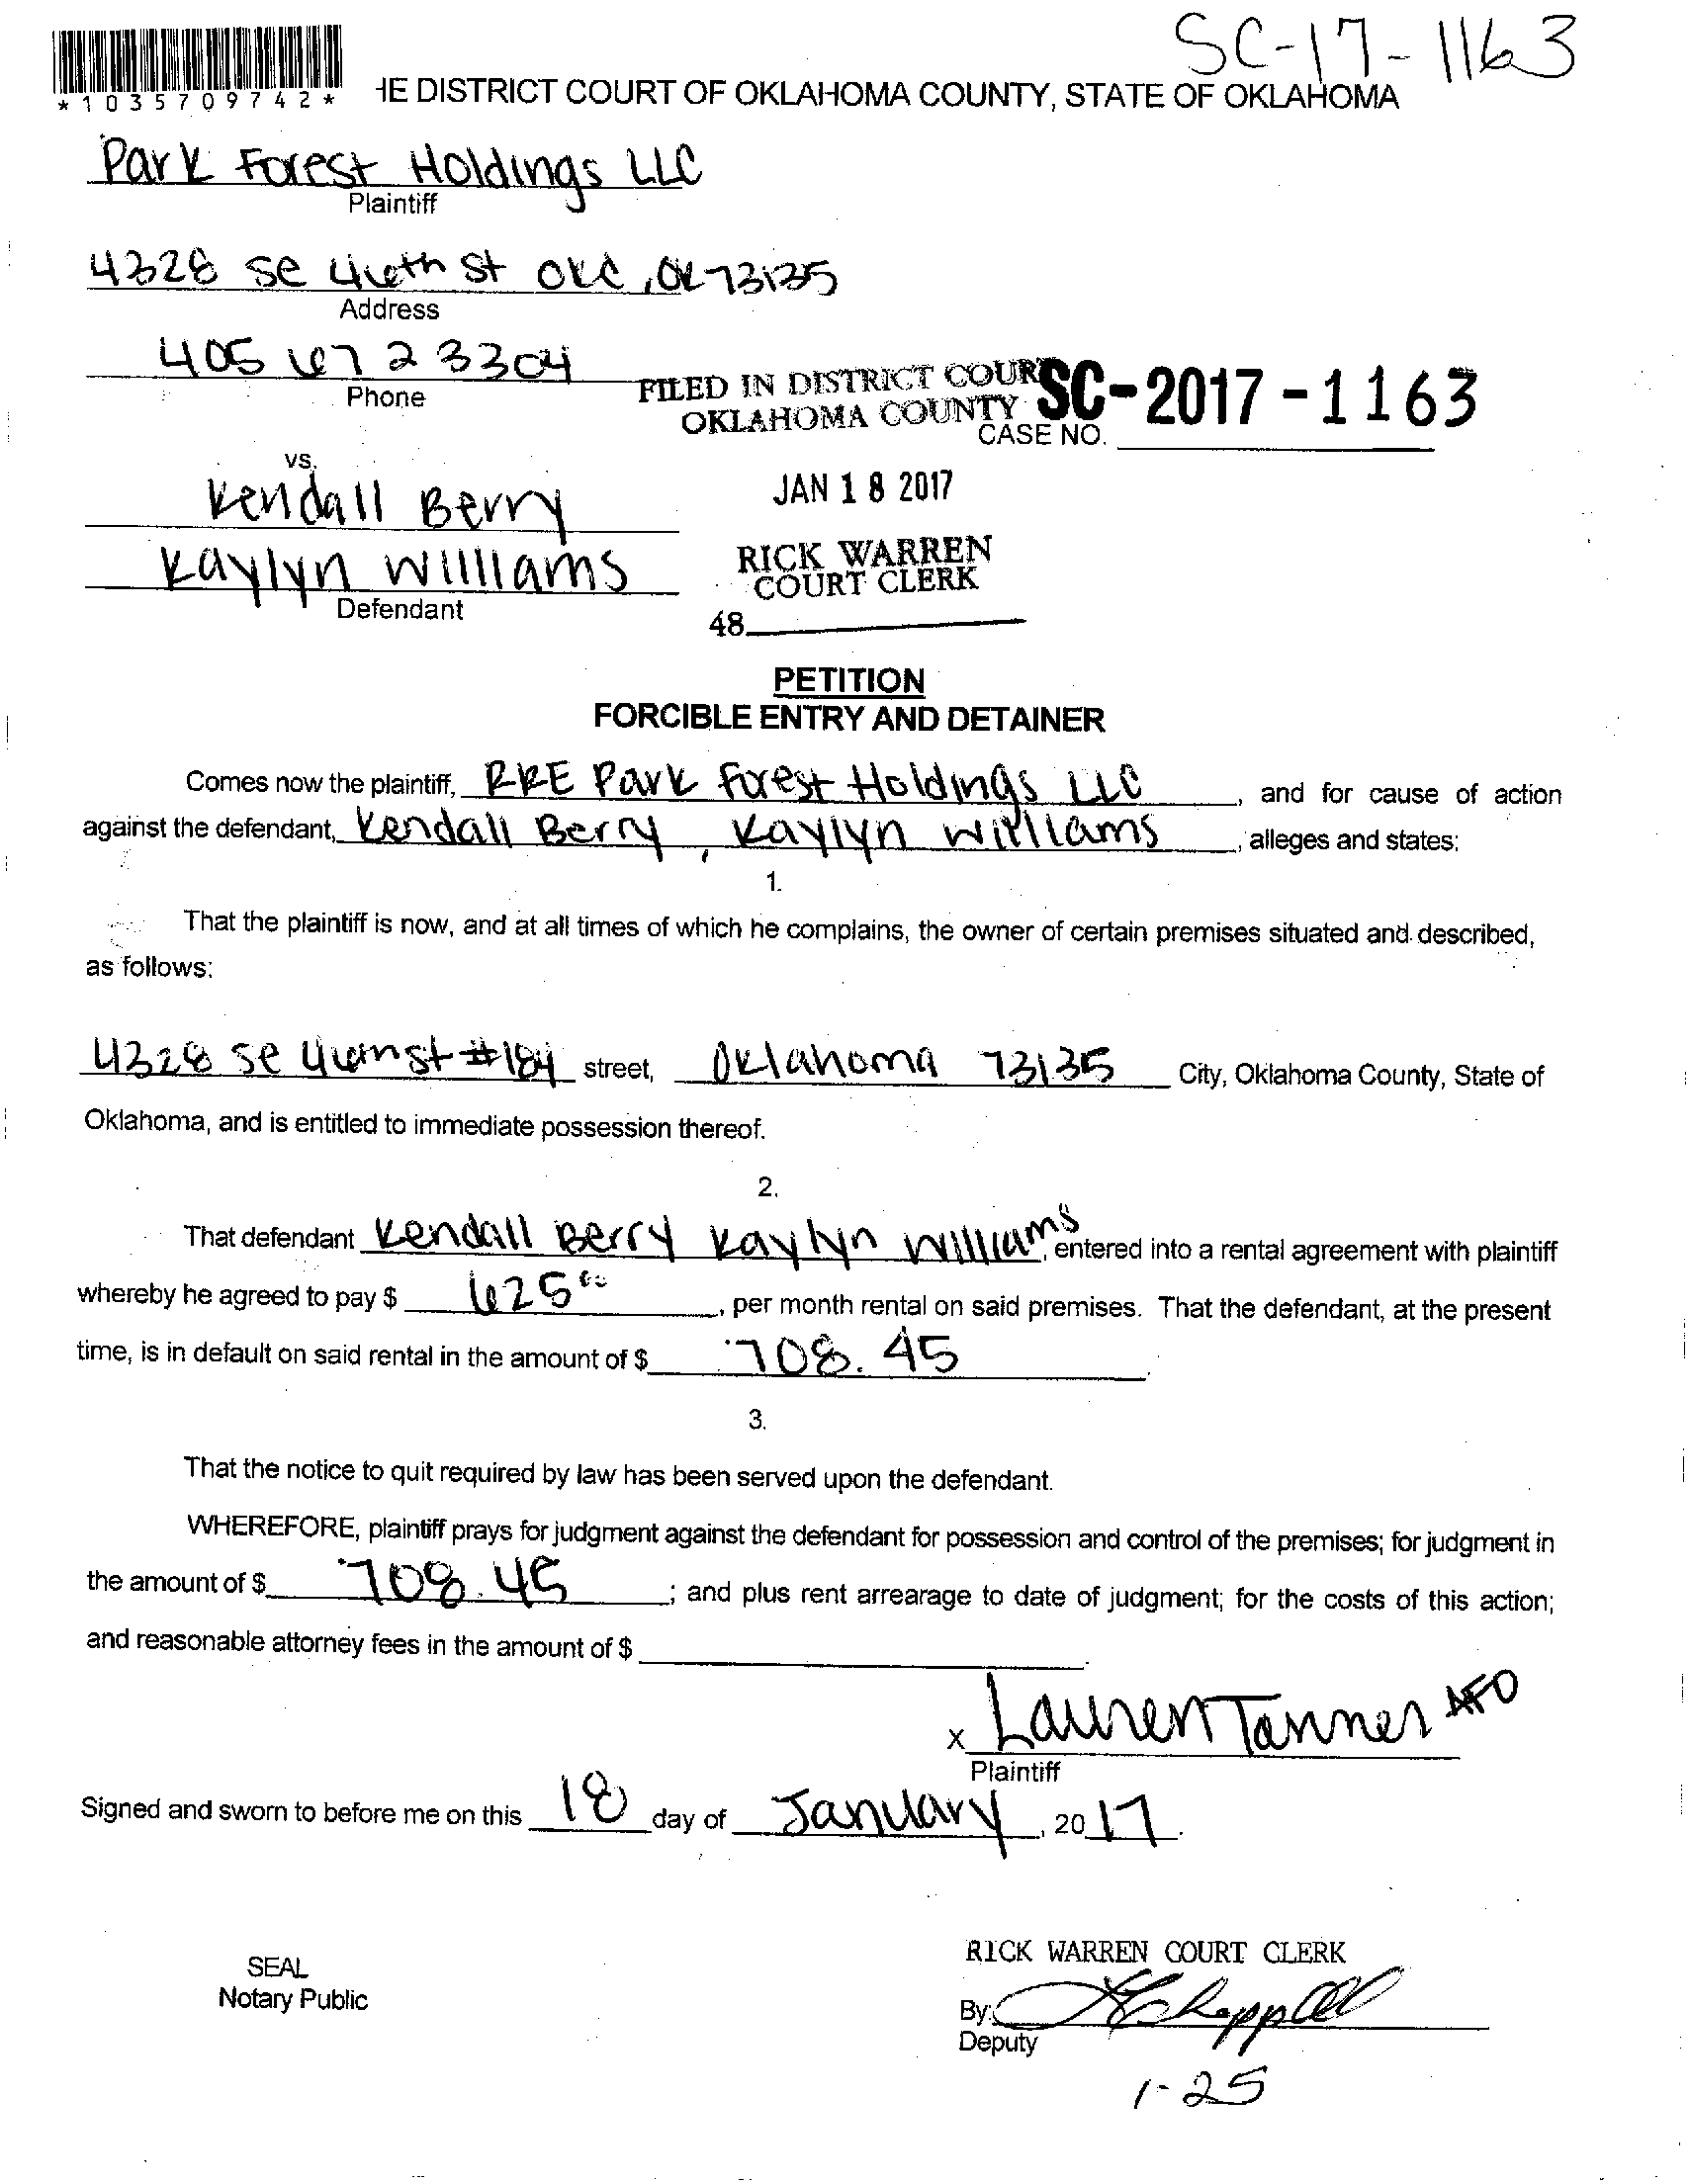 SC-17-1163
*1035709742*
HE DISTRICT COURT OF OKLAHOMA COUNTY, STATE OF OKLAHOMA
Park Forest Holdings LLC
Plaintiff
4328 SE 46th St OKC, OK 73135
Address
405 672 3304
Phone
FILED IN DISTRICT COURT
OKLAHOMA COUNTY
SC-2017-1163
CASE NO.
vs.
JAN 18 2017
Kendall Berry
RICK WARREN
COURT CLERK
Kaylyn Williams
Defendant
48
PETITION
FORCIBLE ENTRY AND DETAINER
Comes now the plaintiff, RRE Park Forest Holdings LLC, and for cause of action
against the defendant, Kendall Berry, Kaylyn Williams, alleges and states:
1.
That the plaintiff is now, and at all times of which he complains, the owner of certain premises situated and described,
as follows:
4328 SE 46th st #184 street, Oklahoma 73135 City, Oklahoma County, State of
Oklahoma, and is entitled to immediate possession thereof.
2.
That defendant Kendall Berry Kaylyn Williams, entered into a rental agreement with plaintiff
whereby he agreed to pay $ 625 00, per month rental on said premises. That the defendant, at the present
time, is in default on said rental in the amount of $ 708.45.
3.
That the notice to quit required by law has been served upon the defendant.
WHEREFORE, plaintiff prays for judgment against the defendant for possession and control of the premises; for judgment in
the amount of $ 708.45; and plus rent arrearage to date of judgment; for the costs of this action;
and reasonable attorney fees in the amount of $
x Lauren Tanner AFO
Plaintiff
Signed and sworn to before me on this 18 day of January, 2017.
SEAL
Notary Public
RICK WARREN COURT CLERK
By:
Deputy
1-25